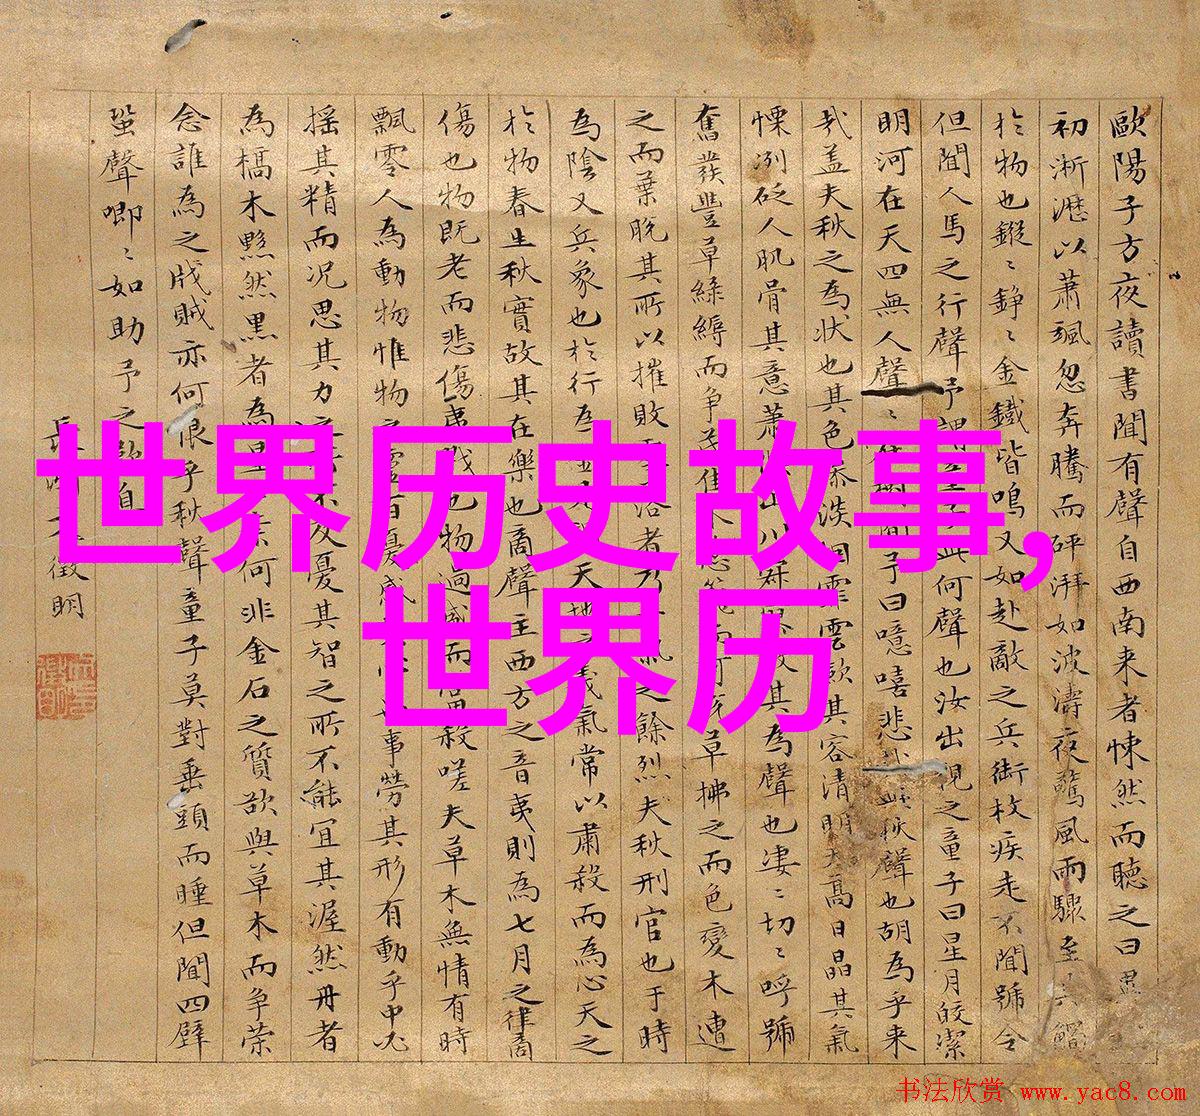 歐陽子方夜讀書聞有聲自西南来者悚然而聽之曰異
初淅瀝以蕭颯忽奔騰而砰湃如波濤夜驚風雨驟至其觸
扵物也鏦〻錚〻金鐵皆鳴又如赴敵之兵銜枚疾走不聞號令
但聞人馬之行聲予謂此何聲也汝出視之童子曰星月皎潔
明河在天四無人聲〻間予曰噫嘻悲秋聲也胡為乎来
㢤盖夫秋之為状也其色慘淡烟霏雲歛其容清明天高日晶其氣
慄冽砭人肌骨其意蕭山川故其為聲也凄〻切〻呼號
奮發豐草綠縟而争茂佳而可草拂之而色變木遭
之而葉脫其所以摧敗落者之餘烈夫秋刑官也于時
為陰又兵象也扵行為天地義氣常以肅殺而為心天之
扵物春生秋實故其在樂也商聲主西方之音夷則為七月之律商
傷也物既老而悲傷夷戮也物過盛而當殺嗟夫草木無情有時
飄零人為動物惟物之靈百憂感事勞其形有動乎中必
摇其精而况思其力之不及憂其智之所不能宜其渥然丹者
為槁木黟然黒者為星奈何非金石之質欲與草木而争荣
念誰為之戕賊亦何恨乎秋聲童子莫對垂頭而睡但聞四壁
蛩聲唧〻如助予之歎自
長文徵明
世界历史故事,
世界历
书法欣赏 www.yac8.com